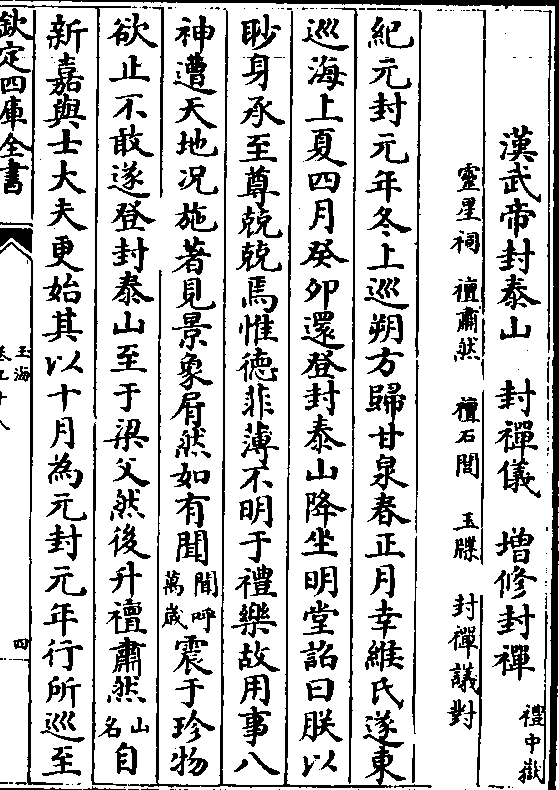 漢武帝封泰山 封禪儀 增修封禪 禮中嶽
靈星祠 禮肅然 禮石閭 玉牒 封禪議對
紀元封元年冬上巡朔方歸甘泉春正月幸緱氏遂東
巡海上夏四月癸卯還登封泰山降坐明堂詔曰朕以
眇身承至尊兢兢焉惟德菲薄不明于禮樂故用事八
神遭天地况施著見景象屑然如有聞聞呼萬歲震于珍物
欲止不敢遂登封泰山至于梁父然後升禮肅然山名自
新嘉與士大夫更始其以十月為元封元年行所巡至
欽定四庫全書
玉海
卷五十八
四